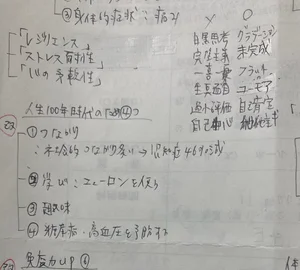 ③身体的症状:痛み
× ○
「レジリエンス」
「ストレス耐性」
「心の柔軟性」
白黒思考 グラデーション
完全主義 未完成
一喜一憂 フラット
ユーモア
過小評価 自己肯定
自己中心
人生100年時代の「四つ」
①つながり
:社会的つながり多い→認知症46%減
②学び:ニューロンを使う
③趣味
④糖尿病・高血圧を予防する
免疫力up⑥